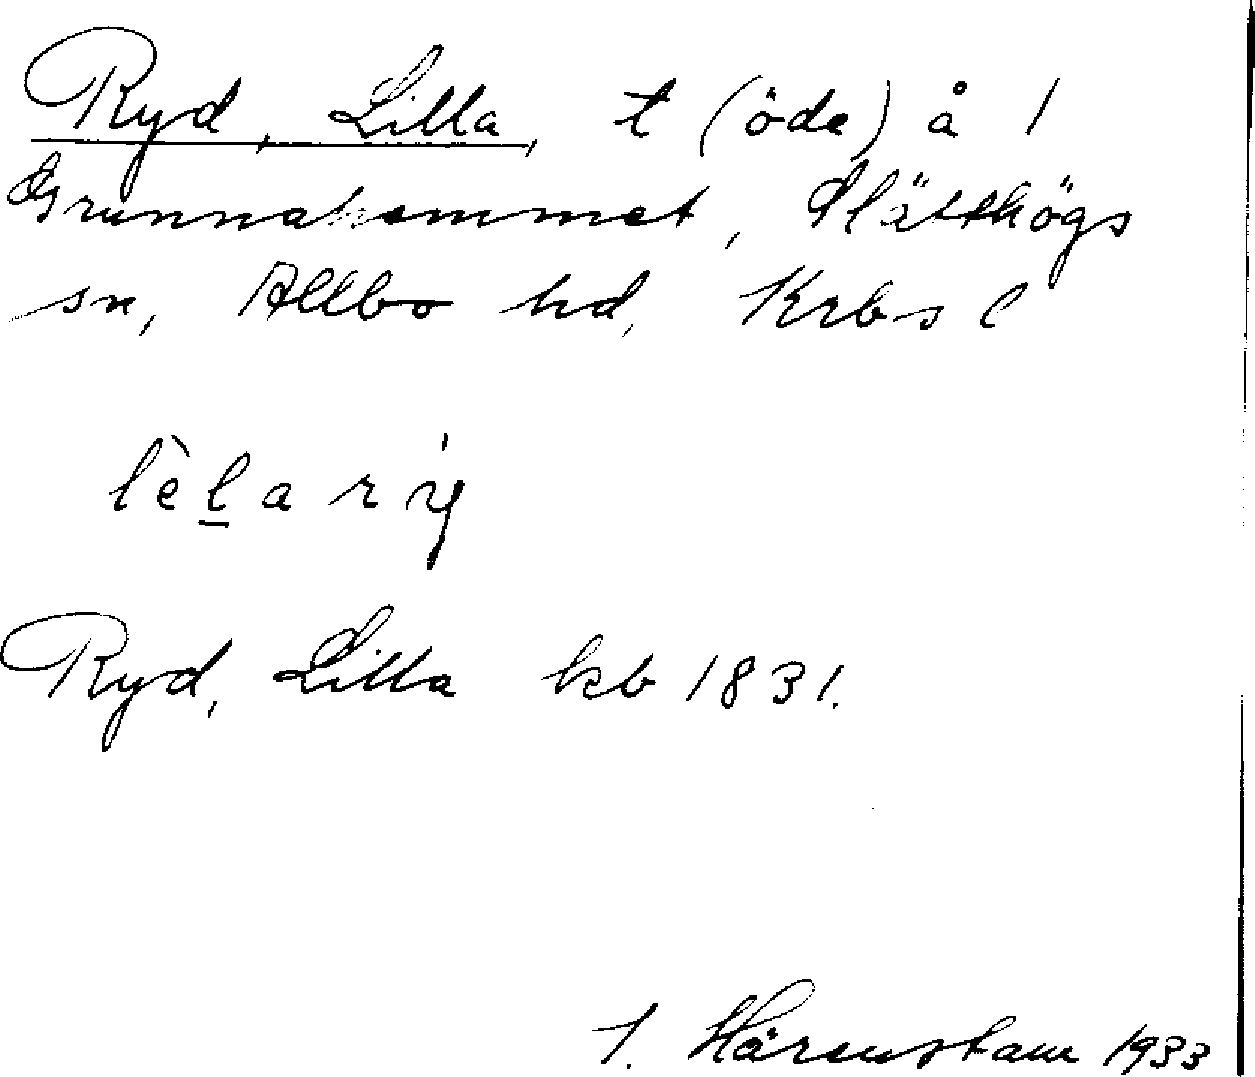 Ryd, Lilla, t (öde) å 1
Grunnahemmet, Slätthögs
sn, Allbo hd, Krbs l
lèl̲a rý
Ryd, Lilla kb 1831.
J. Härenstam 1933